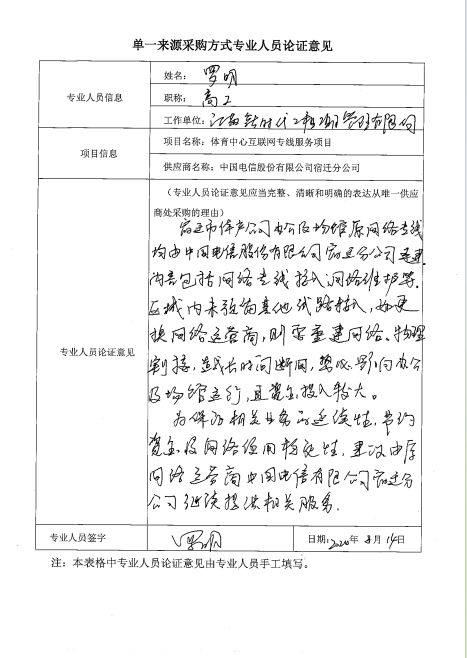 单一来源采购方式专业人员论证意见
专业人员信息
姓名：罗明
职称：高工
工作单位：江苏新时代工程项目管理有限公司
项目信息
项目名称：体育中心互联网专线服务项目
供应商名称：中国电信股份有限公司宿迁分公司
专业人员论证意见
（专业人员论证意见应当完整、清晰和明确的表达从唯一供应
商处采购的理由）
宿迁市体产公司办公及场馆原网络专线
均由中国电信股份有限公司宿迁分公司承建
内容包括网络专线接入、网络维护等。
区域内未预留其他线路接入，如更
换网络运营商，则需重建网络。物理
割接，造成长时间断网，势必影响办公
及场馆运行，且资金投入较大。
为保障相关业务的延续性，节约
资金及网络使用稳定性，建议由原
网络运营商中国电信有限公司宿迁分
公司继续提供相关服务。
专业人员签字
罗明
日期：2020年8月14日
注：本表格中专业人员论证意见由专业人员手工填写。